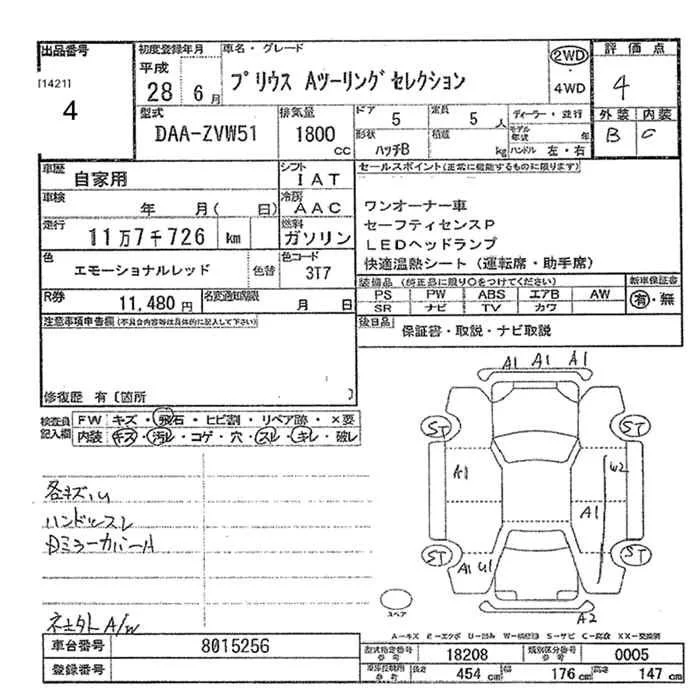 出品番号
[1421]
4
初度登録年月
平成
28年 6月
車名・グレード
プリウス Aツーリングセレクション
2WD
4WD
評価点
4
外装 内装
B C
型式
DAA-ZVW51
排気量
1800 CC
ドア
5
定員
5人
ディーラー・並行
形状
ハッチB
積載
kg
モデル年式 年
ハンドル 左・右
車歴
自家用
シフト
IAT
車検
年 月( 日)
冷房
AAC
走行
11万7千726 km
燃料
ガソリン
色
エモーショナルレッド
色替
色コード
3T7
R券
11,480円
名変通知期限
月 日
セールスポイント(正常に機能するものに限ります)
ワンオーナー車
セーフティセンスP
LEDヘッドランプ
快適温熱シート(運転席・助手席)
装備品(純正品に限り○をつけてください)
PS PW ABS エアB AW
SR ナビ TV カワ
新車保証書
有・無
後日品
保証書・取説・ナビ取説
注意事項申告欄(不具合内容等は具体的に記入して下さい)
修復歴 有〔箇所 〕
検査員記入欄
FW キズ・飛石・ヒビ割・リペア跡・×要
内装 キズ・汚レ・コゲ・穴・スレ・キレ・破レ
各キズ、U
ハンドルスレ
Dミラーカバー A
A/W
A1 A1 A1
ST ST
A1 W2
A1
ST ST
A1 U1
A2
スペア
A-キズ E-エクボ U-凹み W-補修跡 S-サビ C-腐食 XX-交換済
車台番号
8015256
登録番号
型式指定番号 参考
18208
類別区分番号 参考
0005
長さ 454 cm 幅 176 cm 高さ 147 cm